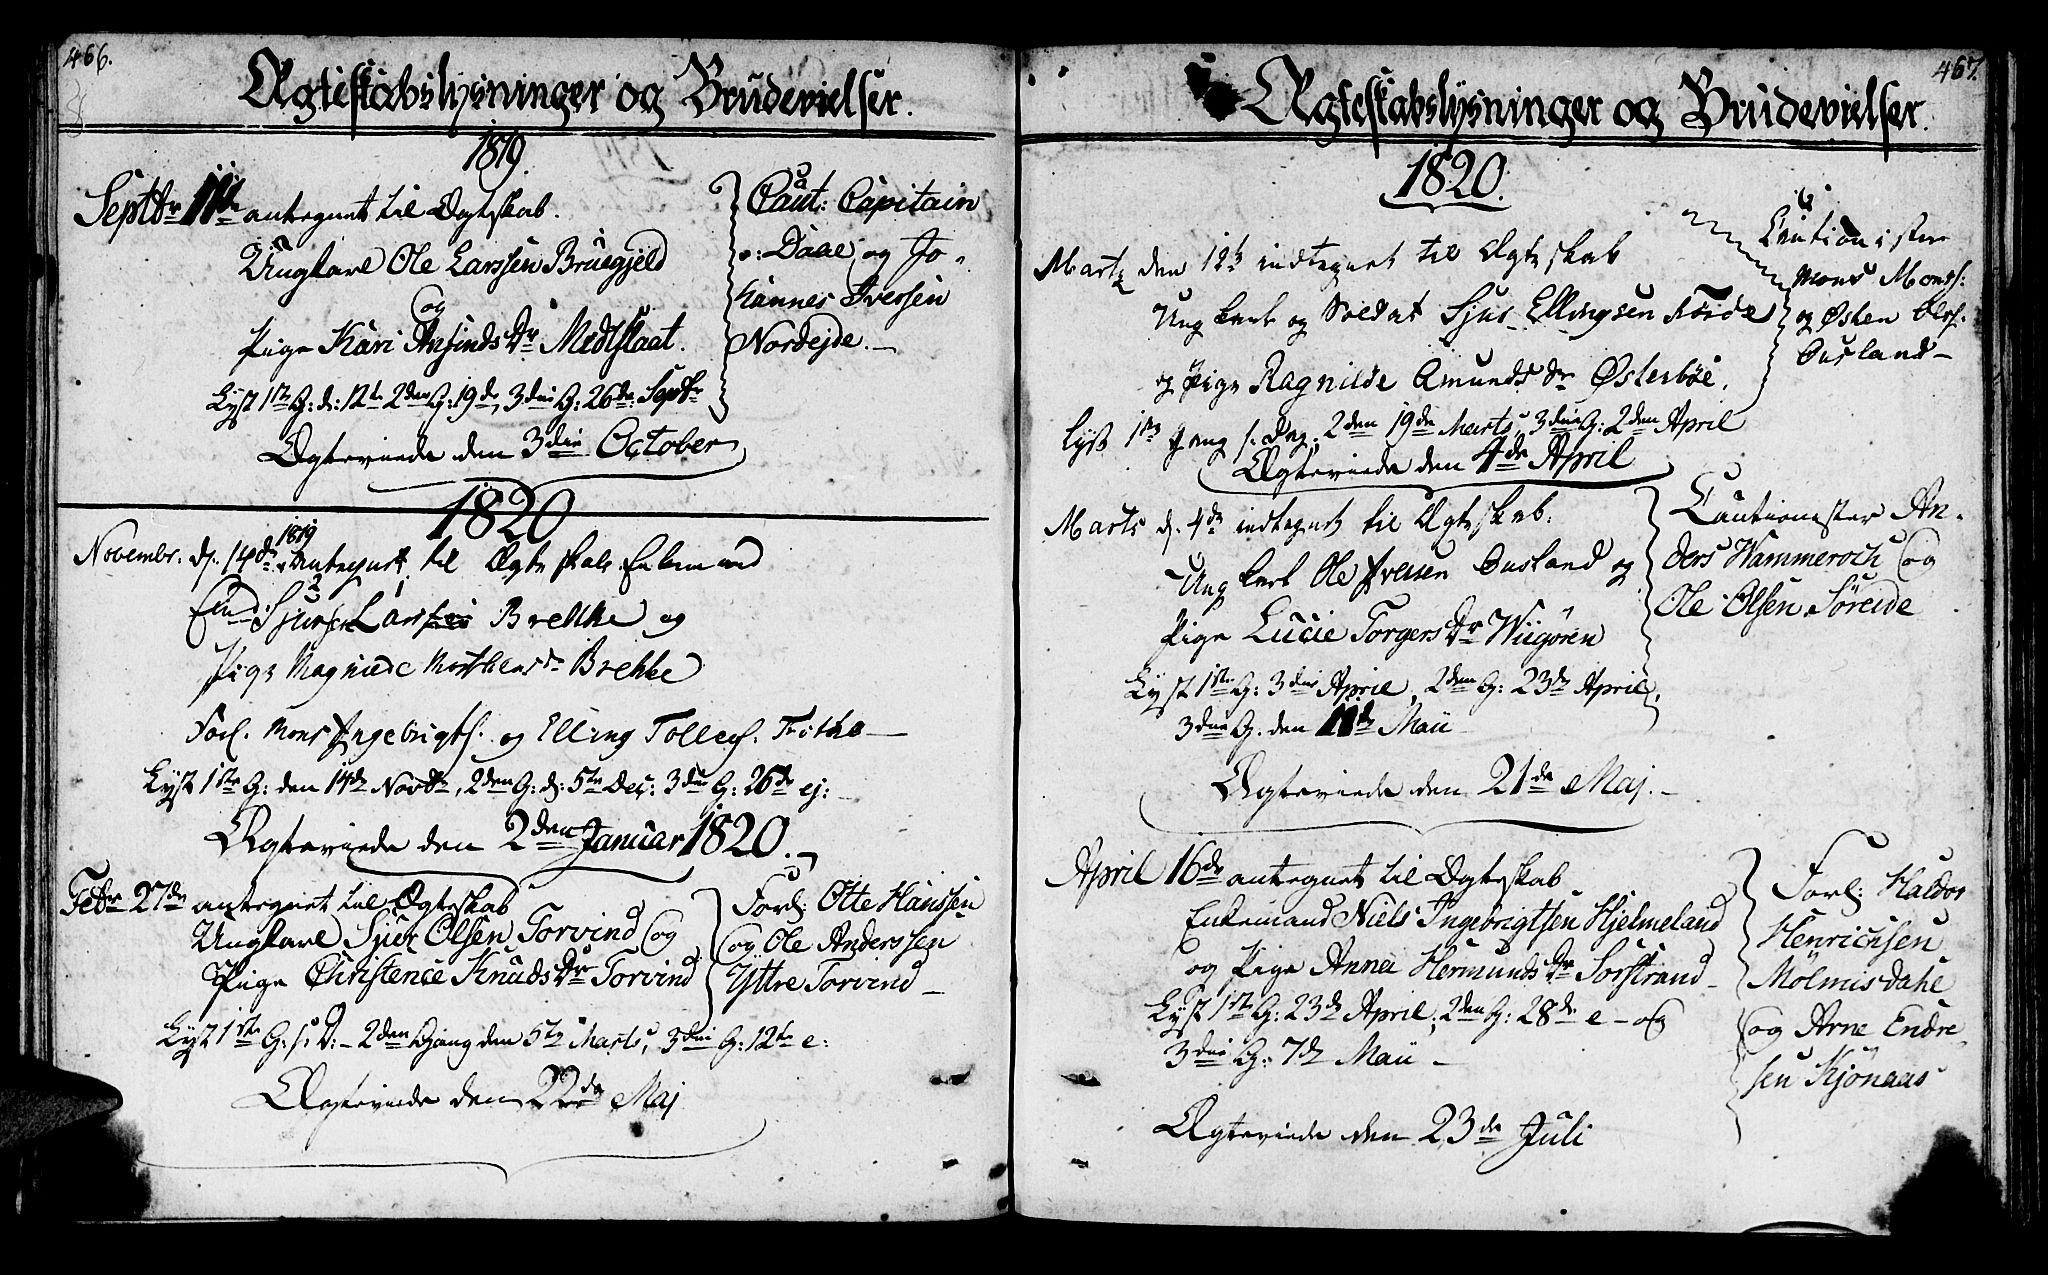 466.
Ægteskabslysninger og Brudevielser.
1819.
Septbr 11te antegnet til Ægteskab.
Ungkarl Ole Larssen Bruegjeld
og
Pige Kari Ansinds Dr Medstaat.
Lyst 1ste G: d: 12te 2den G: 19de, 3die G: 26de Septbr
Ægteviede den 3die October
Caut: Capitain
v: Daae og Jo-
hannes Iversen
Nordejde.
1820
Novembr. d. 14de 1819 antegnet til Ægteskab Enkemand
Sjursen Larssen Brekke og
Pige Magnilde Mathiens dr Brekke
Forl. Mons Ingebrigts. og Elling Tollefs. Fretha
Lyst 1ste G: den 14de Novbr, 2den G: d: 5te Dec: 3die G: 26de ej:
Ægteviede den 2den Januar 1820.
Febr 27de antegnet til Ægteskab
Ungkarl Sjur Olsen Torvind og
Pige Christence Knuds Dr Torvind
Lyst 1ste G: s: D: - 2den Gang den 5te Marts, 3die G: 12te e:
Ægteviede den 22de Maj
Forl: Otte Hanssen
og Ole Anderssen
Yttre Torvind
467.
Ægteskabslysninger og Brudevielser.
1820.
Marts den 12te indtegnet til Ægteskab
Ung karl og Soldat Sjur Ellingsen Förde
og Pige Ragnilde Amunds dr Østerböe.
Lyst 1ste Gang s. Dag. 2den 19de Marts, 3die G: 2den April
Ægteviede den 4de April
Cautionister
Mons Monss:
og Østen Olss.
Ousland
Marts d. 4de indtegnet til Ægteskab.
Ung karl Ole Iversen Ousland og
Pige Lucie Torgers Dr Wiigören
Lyst 1ste G: 3die April, 2den G: 23de April,
3die G. den 11te Maii
Ægteviede den 21de Maj.
Cautionister An-
ders Wammeroch og
Ole Olsen Söreide
April 16de antegnet til Ægteskab
Enkemand Niels Ingebrigtsen Hjelmeland
og Pige Anna Hermunds Dr Sorstrand
Lyst 1ste G: 23de April, 2den G: 28de e- og
3die G: 7de Maii
Ægteviede den 23de Juli
Forl: Haldor
Henrichsen
Mölmisdahl
og Arne Endre-
sen Kjönaas